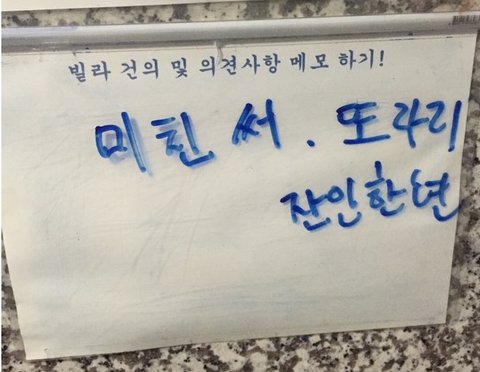 빌라 건의 및 의견사항 메모 하기!
미친 써. 또라리
잔인한년